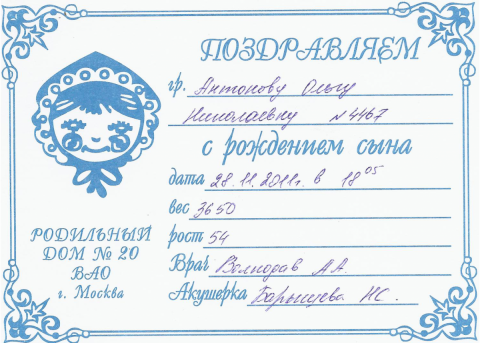 ПОЗДРАВЛЯЕМ
гр. Антонову Ольгу
Николаевну N 4467
с рождением сына
дата 28.11.2011г. в 18 05
вес 3650
рост 54
Врач А.А.
Акушерка Барышева НС.
РОДИЛЬНЫЙ
ДОМ № 20
ВАО
г. Москва